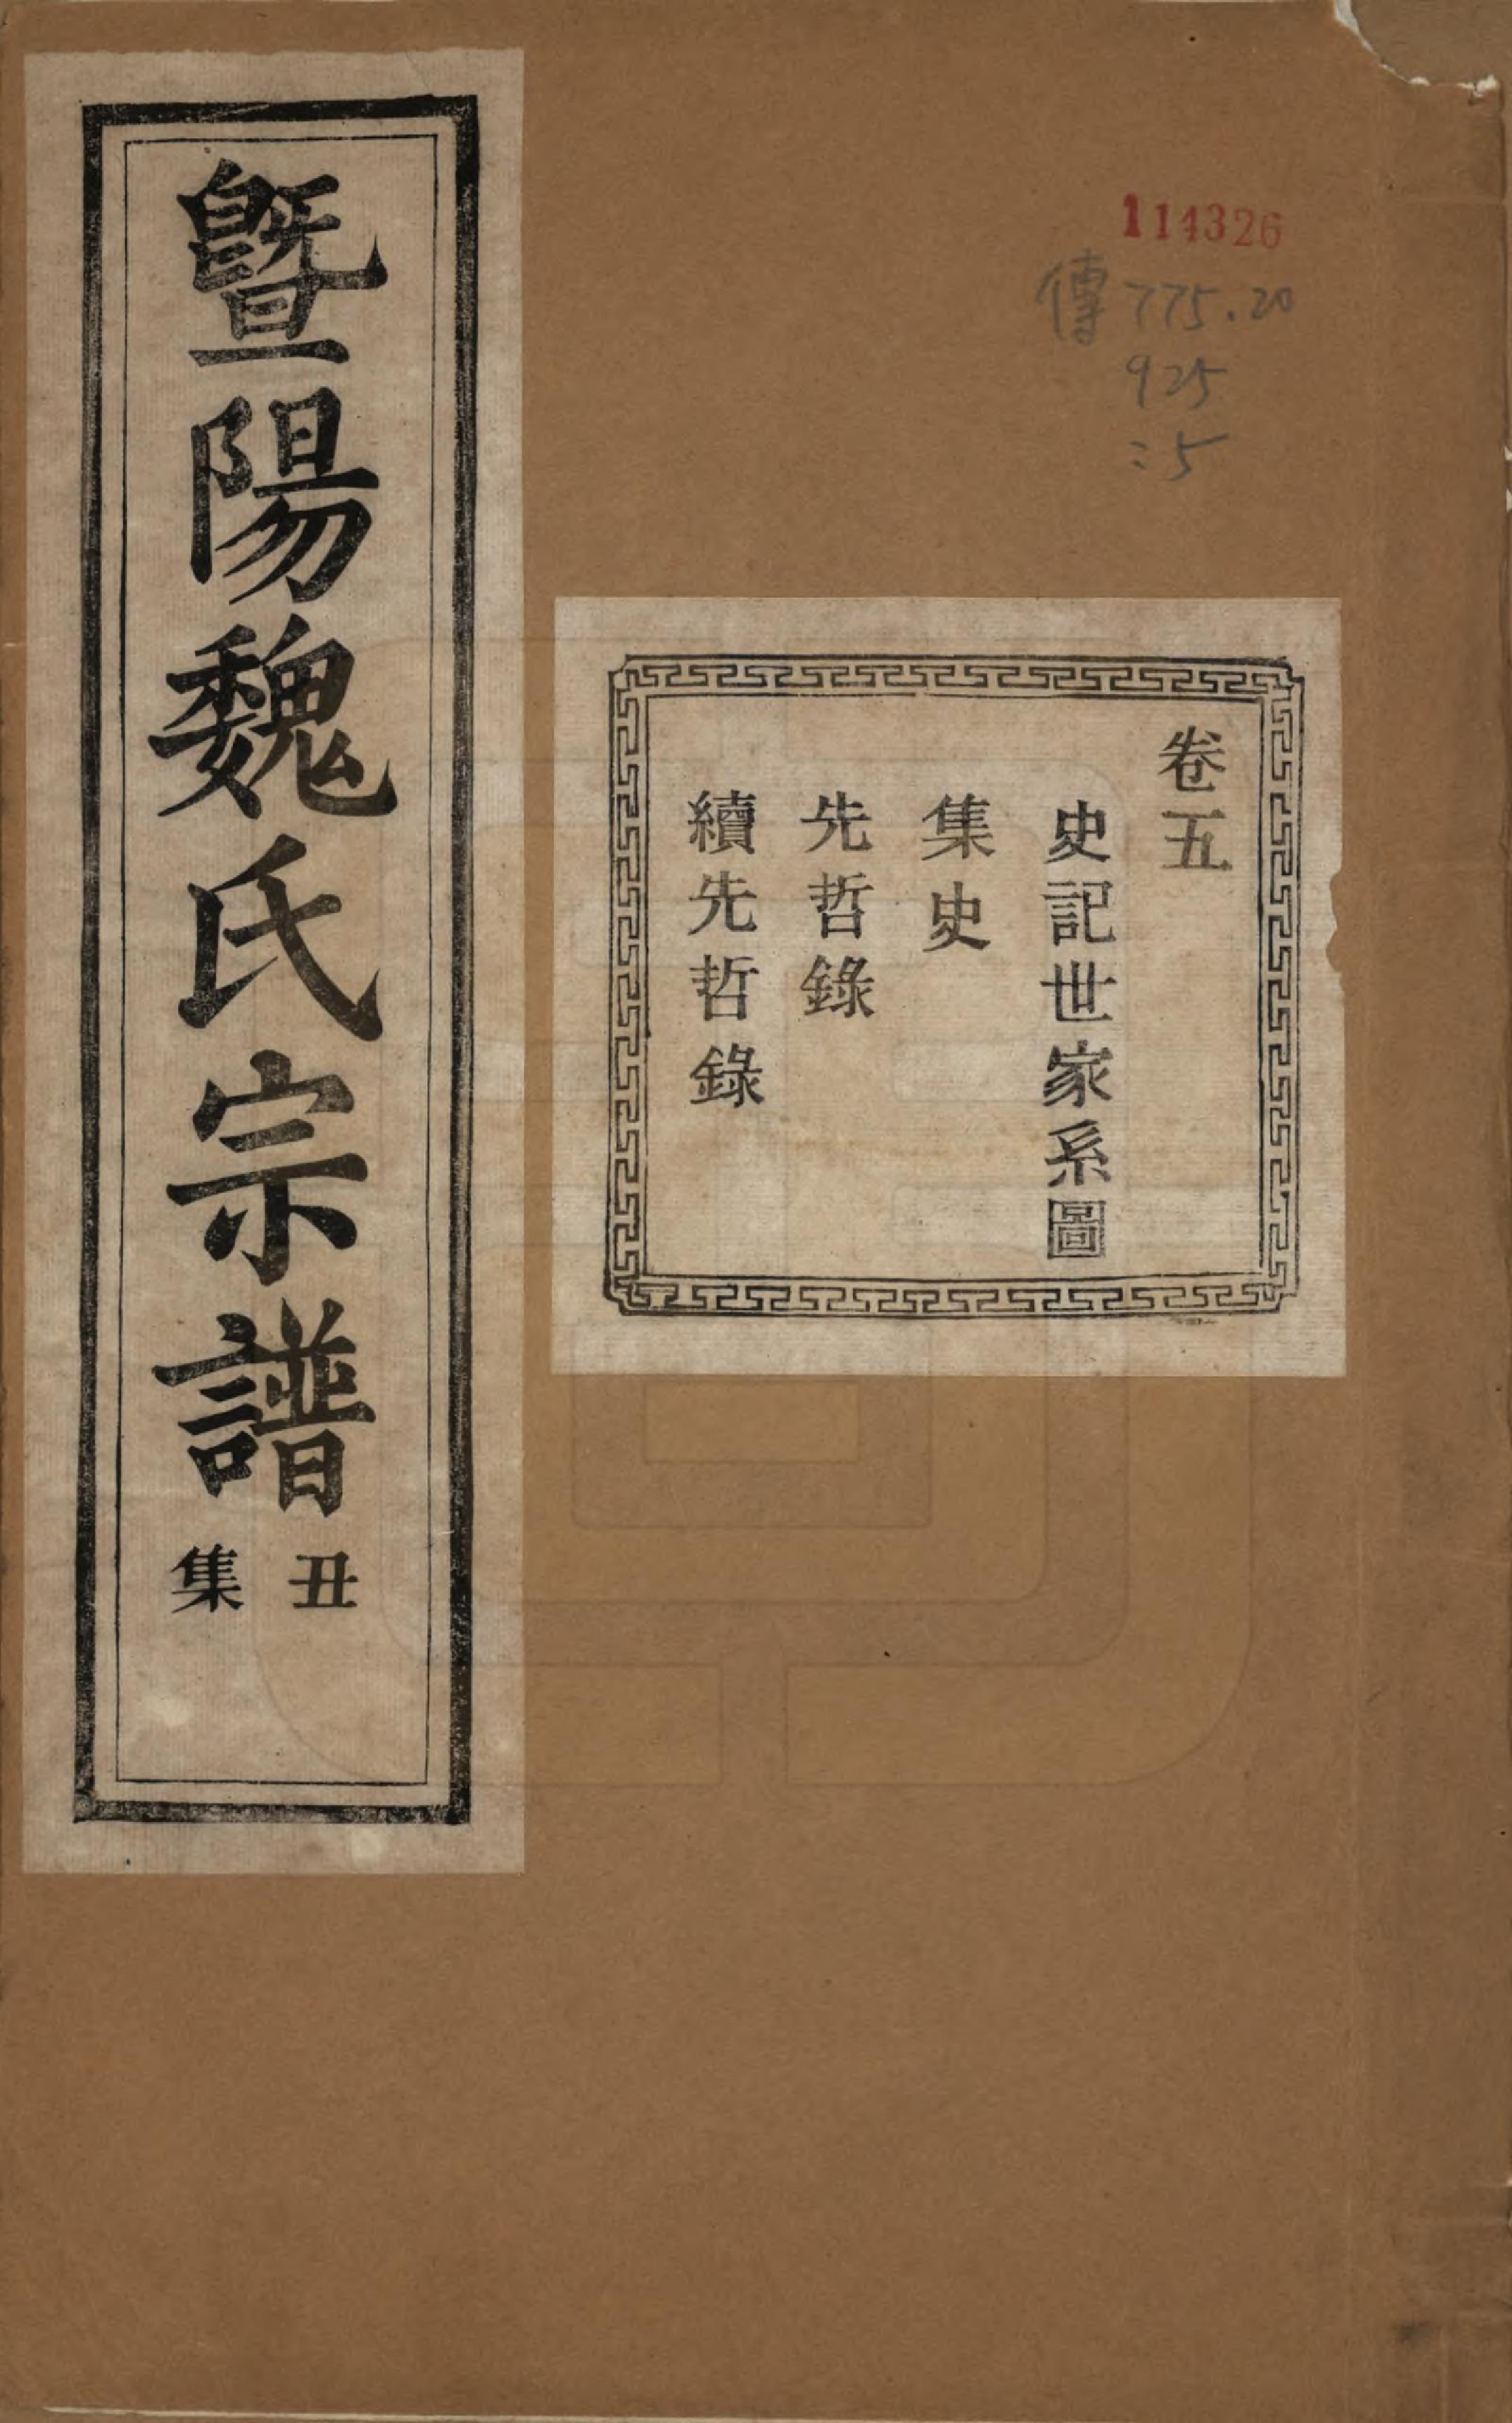 114326
傳775.20
925
:5
卷五
史記世家系圖
集史
先哲錄
續先哲錄
暨陽魏氏宗譜
丑集